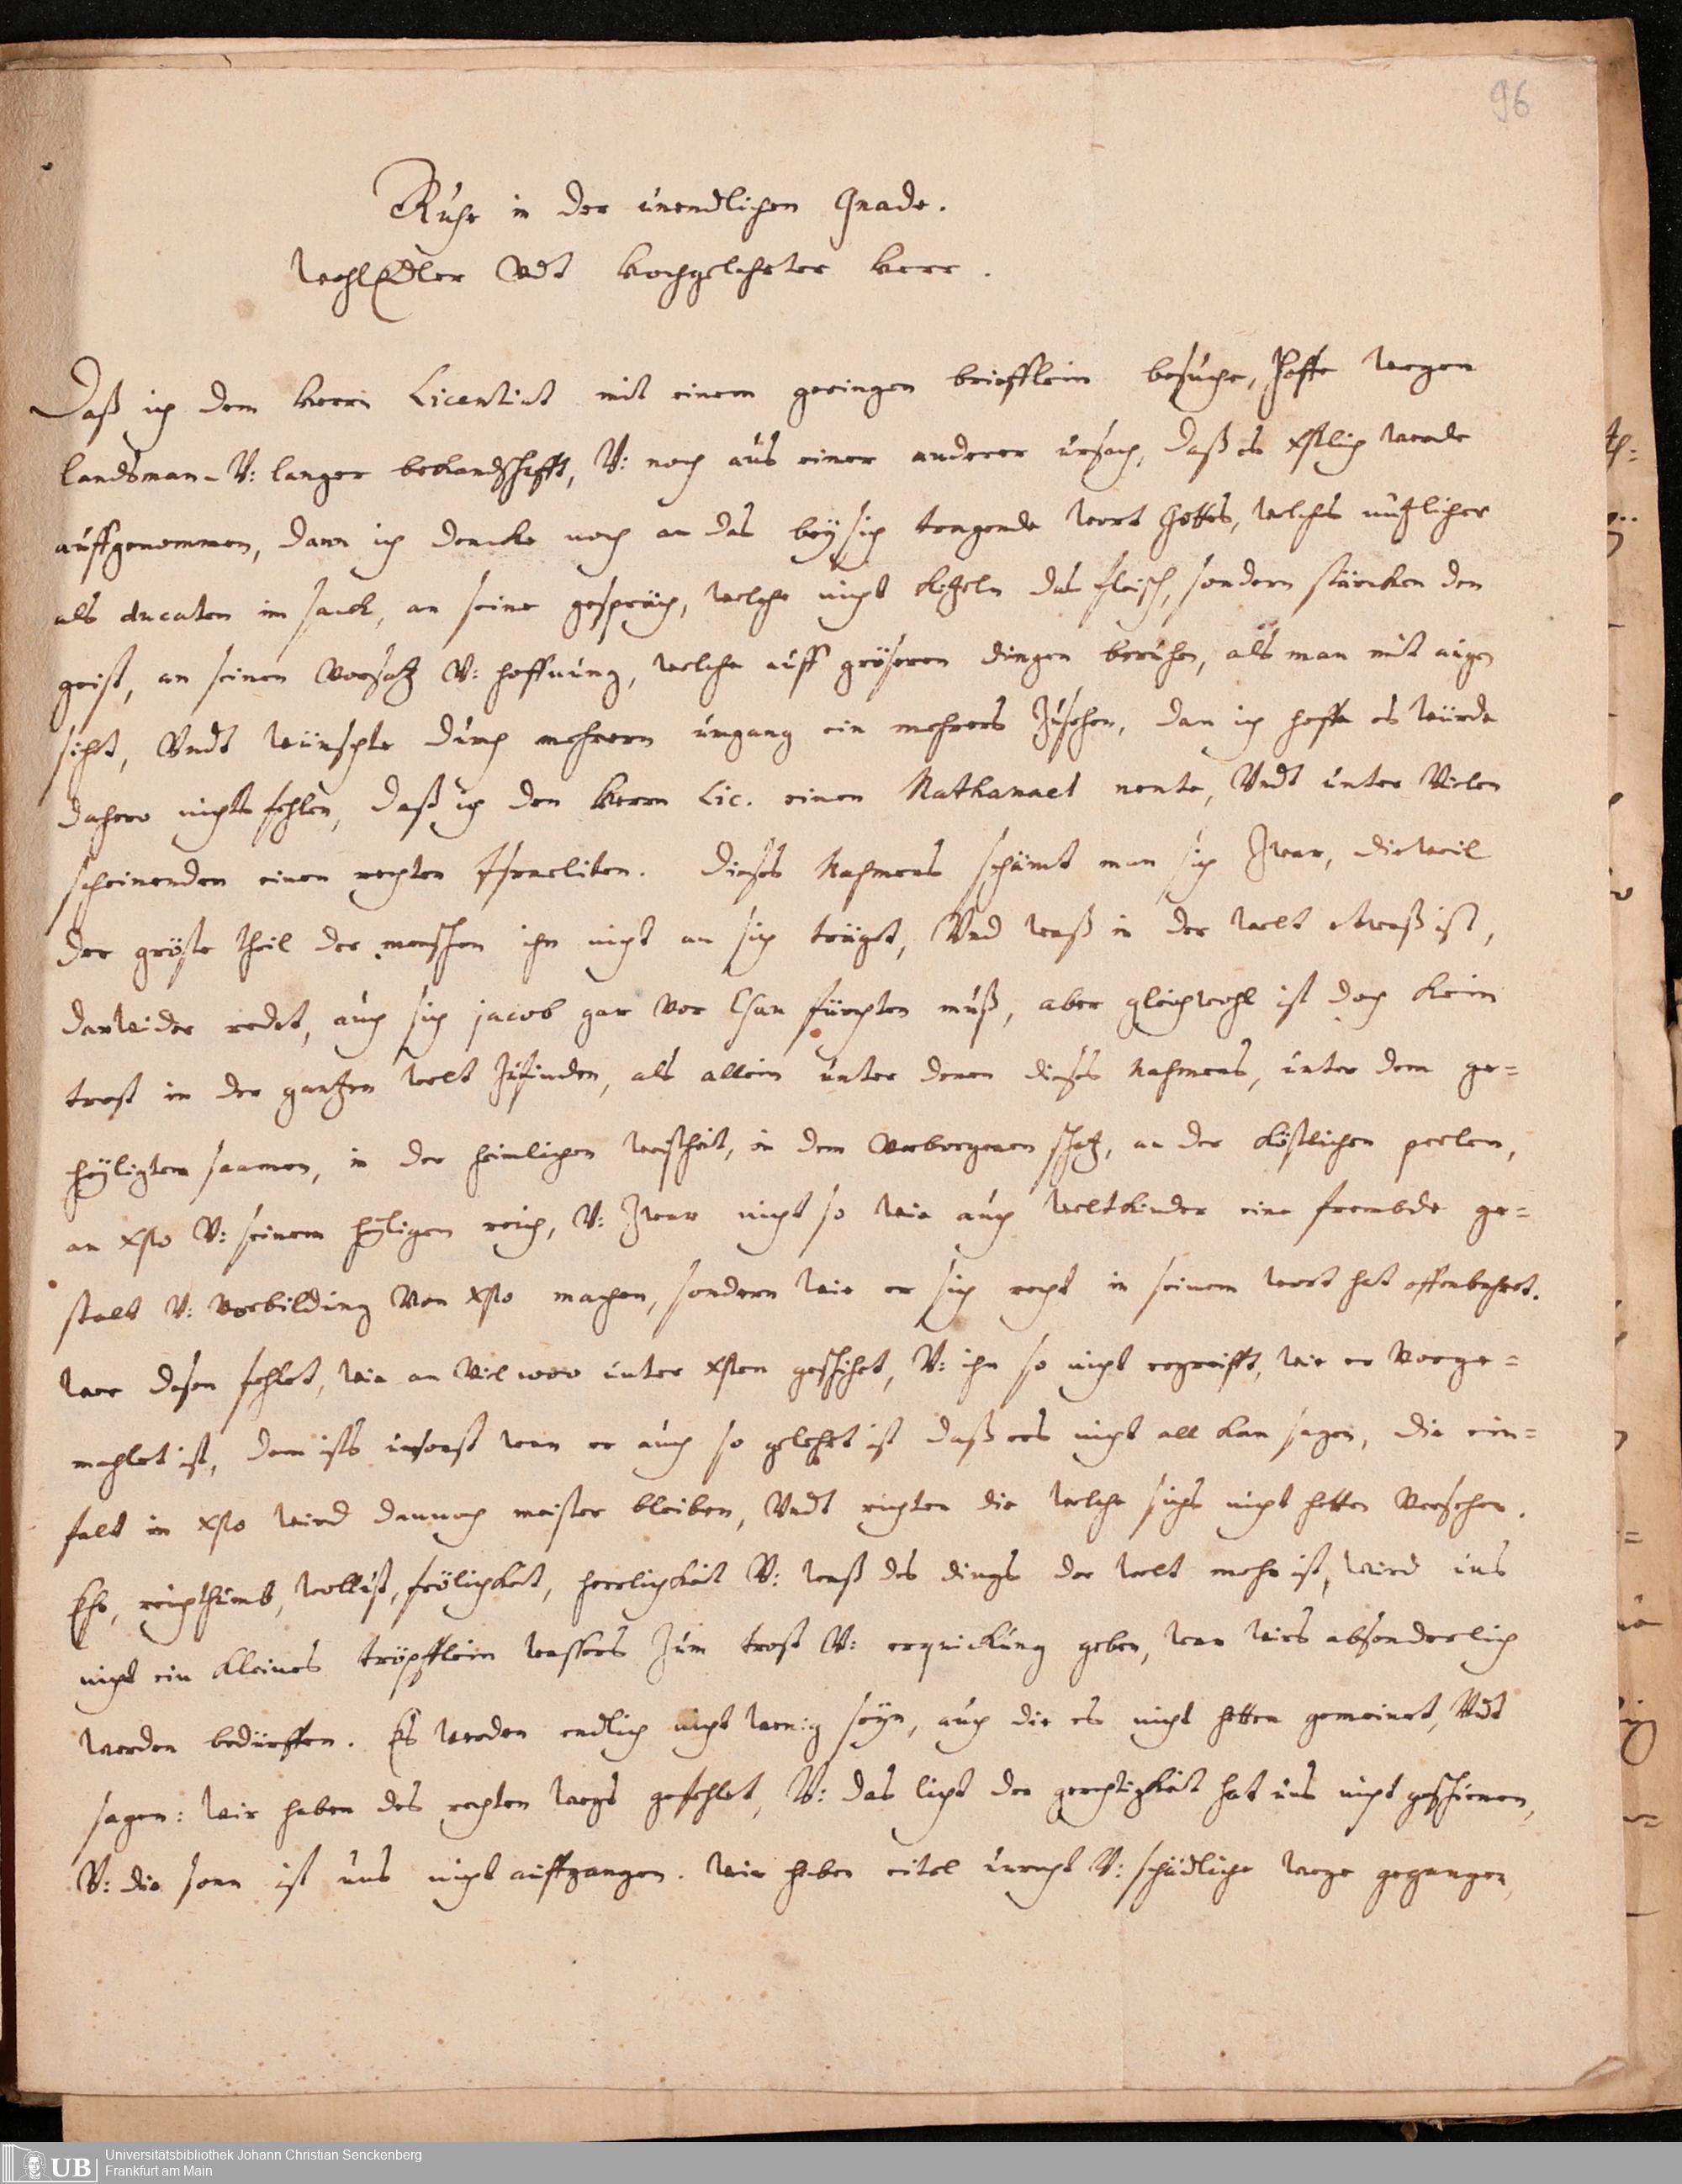 96
Ruhe in der unendlichen Gnade.
WohlEdler Vdt Hochgelehrter Herr.
Daß ich dem Herrn Licentiat mit einem geringen briefflein besuche, hoffe wegen
landsman- V: langer bekandschafft, V: noch aus einer anderer ursach, daß es xstlich werde
auffgenommen, dann ich dencke noch an das bey sich tragende wort Gottes, welches nützlicher
als ducaten im sack, an seine gespräch, welche nicht kitzeln das fleisch, sondern stärcken den
geist, an seinen Vorsatz V: hoffnung, welche auff gröseren dingen beruhen, als man mit augen
sieht, Vndt wünschte durch mehrern umgang ein mehrers zusehen, dan ich hoffe es würde
dahero nichts fehlen, daß ich den Herrn Lic. einen Nathanael nente, Vndt unter Vielen
scheinenden einen rechten Israeliten. Dieses Nahmens schämt man sich zwar, dieweil
der gröste theil der menschen ihn nicht an sich träget, Vnd waß in der welt etwaß ist,
darwider redet, auch sich jacob gar vor Esau fürchten muß, aber gleichwohl ist doch kein
trost in der gantzen welt zufinden, als allein unter denen dieses Nahmens, unter dem ge=
heyligtem saamen, in der heimlichen weisheit, in dem Verborgenen schatz, an der köstlichen perlen,
an xsto V: seinem heyligen reich, V: zwar nicht so wie auch weltkinder eine frembde ge=
stalt V: Vorbildung Von xsto machen, sondern wie er sich recht in seinem wort hat offenbahret.
Wer desen fehlet, wie an Viel 1000 unter xsten geschihet, V: ihn so nicht ergreifft, wie er Vorge=
mahlet ist, dem ists umsonst wan er auch so gelehrt ist daß ers nicht all kan sagen, die ein=
falt in xsto wird dannoch meister bleiben, Vndt richten die welche sichs nicht hetten Versehen.
Ehr, reichthumb, wollust, frölichkeit, herrlichkeit V: waß des dings der welt mehr ist, wird uns
nicht ein kleines tröpfflein wassers zum trost V: erquickung geben, wan wirs absonderlich
werden bedürffen. Es werden endlich nicht wenig seyn, auch die es nicht hetten gemeinet, Vdt
sagen: Wir haben des rechten wegs gefehlet, V: das licht der gerechtigkeit hat uns nicht geschienen,
V: die sonn ist uns nicht auffgangen. Wir haben eitel unrecht V: schädliche wege gegangen,
UB
Universitätsbibliothek Johann Christian Senckenberg
Frankfurt am Main